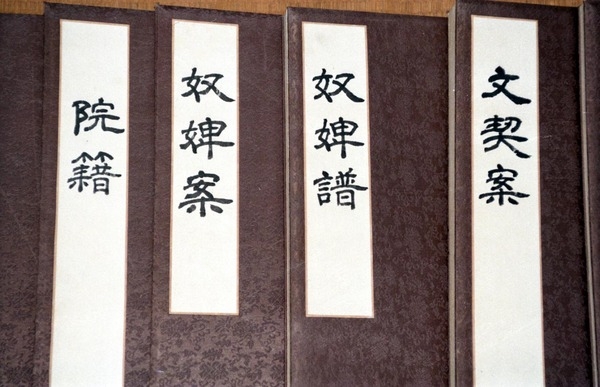 院籍
奴婢案
奴婢譜
文契案